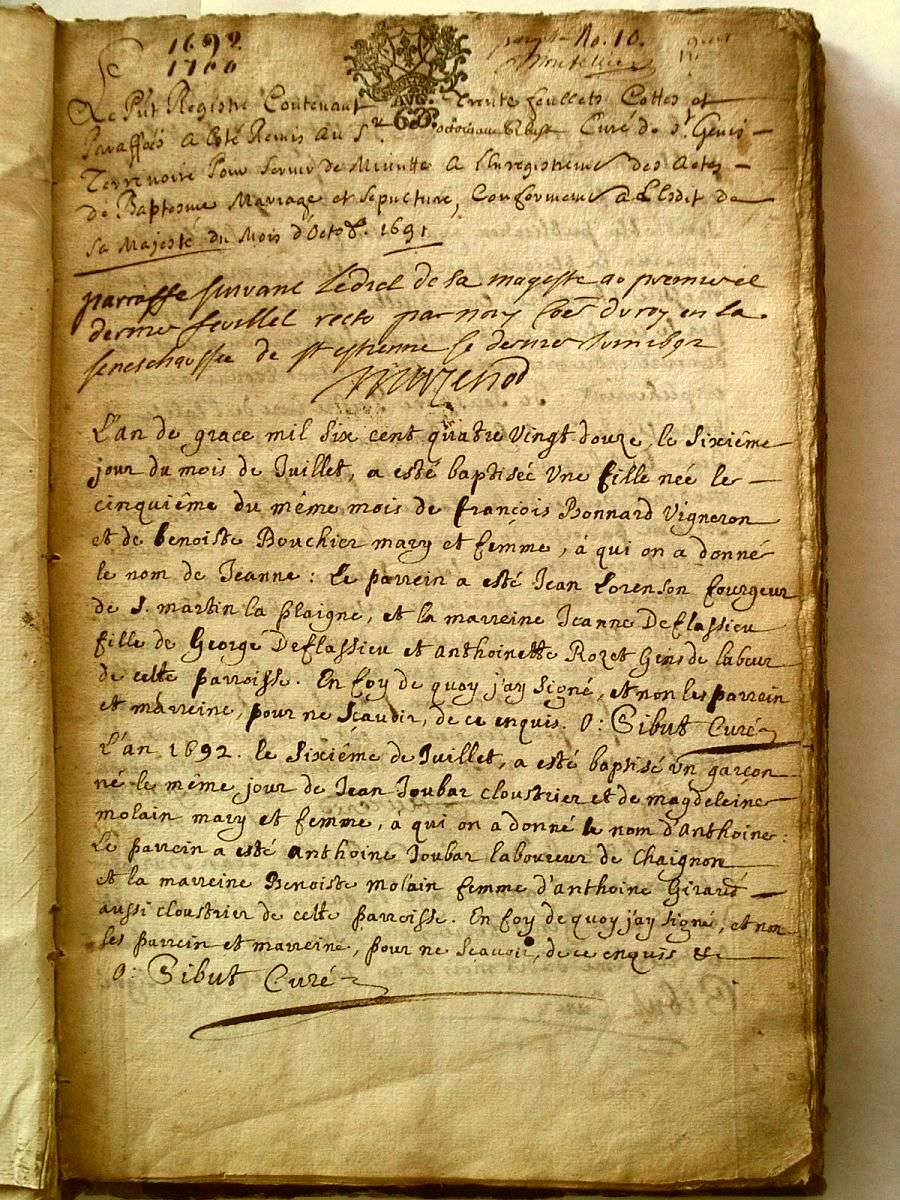 1692
1700
No. 10.
AUG.
Le Pnt Registre Contenant Trente feuillets Cottes et
Paraffés a Esté Remis Au Sr Curé de St Genis
Terrenoire Pour Servir de Minutte A L'Enregistremt des Actes
de Baptesme Mariage et Sepulture, Conformemt A L'Esdit de
Sa Majesté du Mois d'Octob. 1691
parraffe suivant Ledict de sa mageste au premier et
dernier feuillet recto par nous du roy en la
seneschaussee de st estienne le dernier Juin 1692
L'an de grace mil six cent quatre vingt douze, le sixiême
jour du mois de Juillet, a esté baptiseé Une fille née le
cinquiême du même mois de françois Bonnard Vigneron
et de benoiste Bouchier mary et femme, à qui on a donné
le nom de Jeanne: Le parrein a esté Jean Lorenson fourgeur
de S. martin la plaigne, et la marreine Jeanne Deflassieu
fille de George Deflassieu et anthoinette Rozet Gens de labeur
de cette parroisse. En foy de quoy j'ay signé, et non les parrein
et marreine, pour ne sçavoir, de ce enquis. O: Gibut Curé
L'an 1692. le sixiême de Juillet, a esté baptisé un garçon
né le même jour de Jean Joubar cloustrier et de magdeleine
molain mary et femme, à qui on a donné le nom d'Anthoine:
Le parrein a esté anthoine Joubar laboureur de Chaignon
et la marreine Benoiste molain femme d'anthoine Giraud
aussi cloustrier de cette parroisse. En foy de quoy j'ay signé, et non
les parrein et marreine, pour ne scavoir, de ce enquis &c
O: Gibut Curé